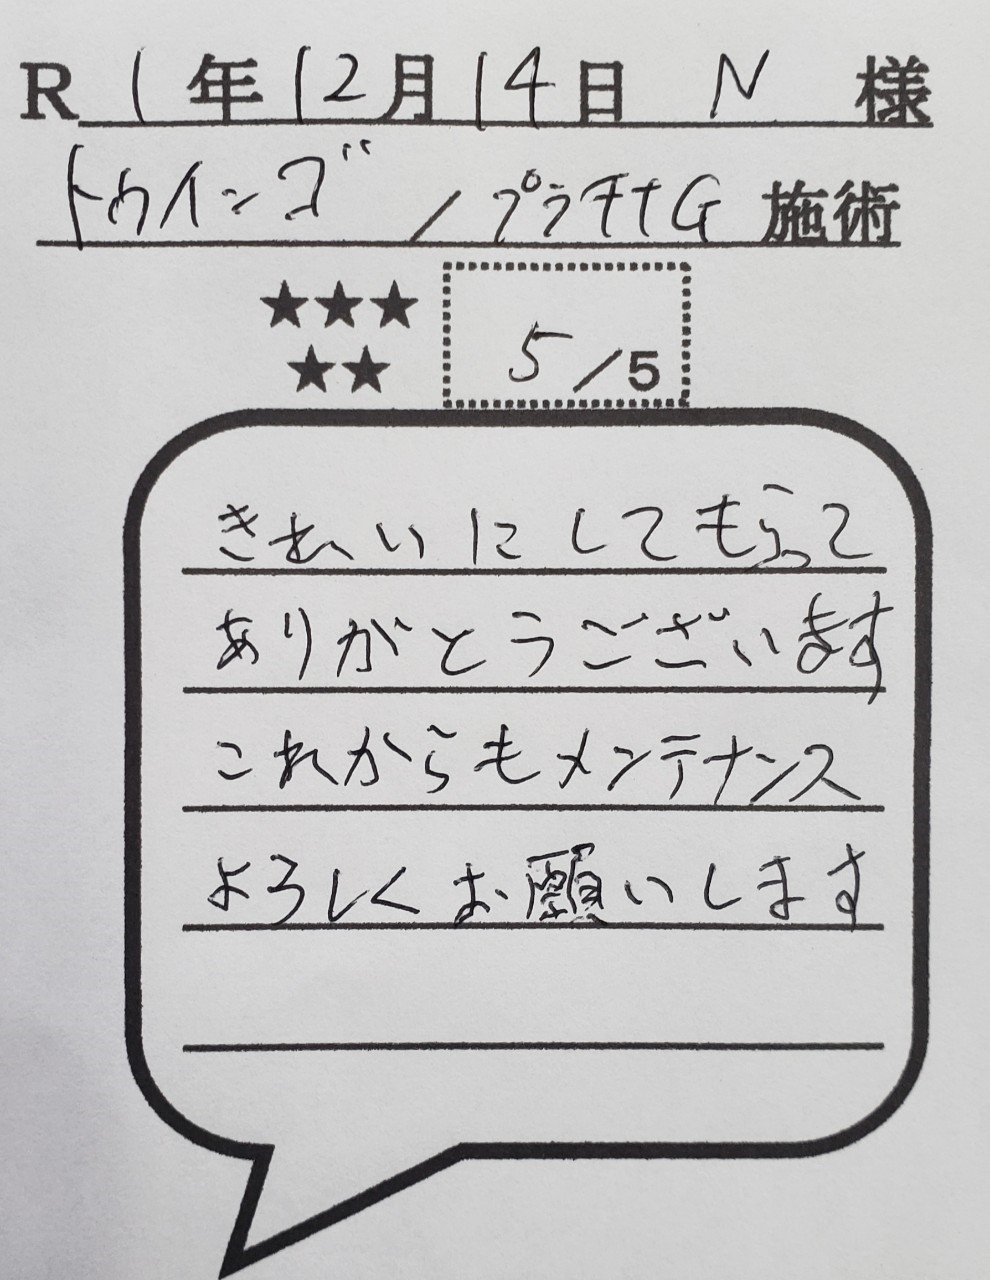 R 1年12月14日 N 様
トゥインゴ / プラチナG 施術
★★★
★★
5/5
きれいにしてもらって
ありがとうございます
これからもメンテナンス
よろしくお願いします